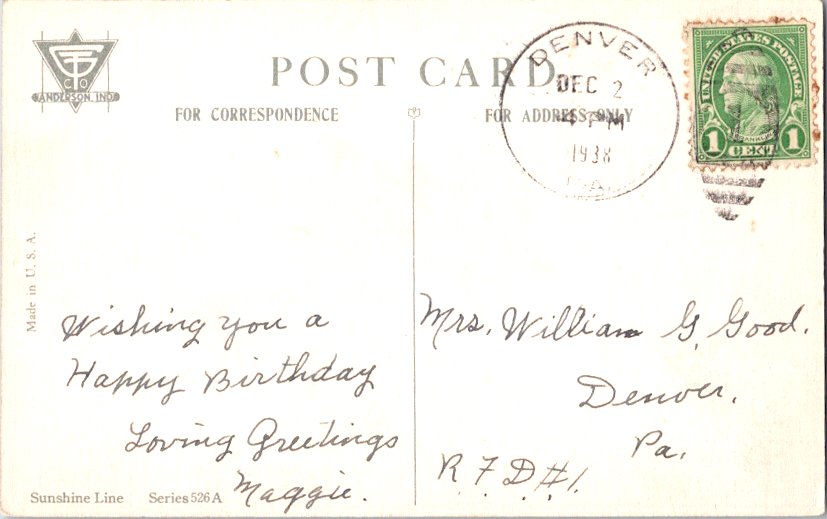 GTCO
ANDERSON, IND.
POST CARD
FOR CORRESPONDENCE
FOR ADDRESS ONLY
DENVER
DEC 2
4 PM
1938
PA.
UNITED STATES POSTAGE
FRANKLIN
1 CENT 1
Made in U. S. A.
Wishing you a
Happy Birthday
Loving Greetings
Maggie.
Mrs. William G. Good.
Denver,
Pa.
R.F.D.#1.
Sunshine Line Series 526 A